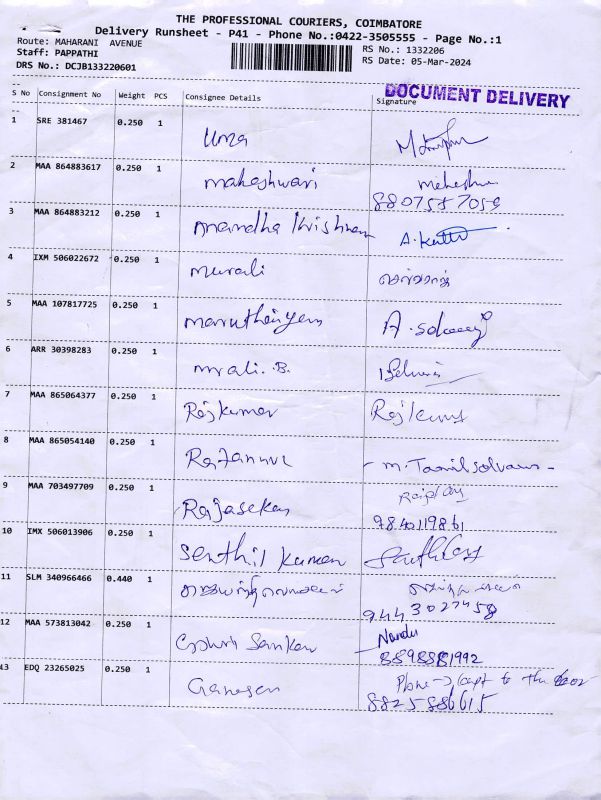 THE PROFESSIONAL COURIERS, COIMBATORE
Delivery Runsheet - P41 - Phone No.:0422-3505555 - Page No.:1
Route: MAHARANI AVENUE
RS No.: 1332206
Staff: PAPPATHI
RS Date: 05-Mar-2024
DRS No.: DCJB133220601
DOCUMENT DELIVERY
S No Consignment No Weight PCS Consignee Details Signature
1 SRE 381467 0.250 1 Uma
2 MAA 864883617 0.250 1 maheshwari
8807557059
3 MAA 864883212 0.250 1 Anandha Krishnan
4 IXM 506022672 0.250 1 murali
5 MAA 107817725 0.250 1
6 ARR 30398283 0.250 1
7 MAA 865064377 0.250 1 Rajkumar Rajkumar
8 MAA 865054140 0.250 1 m. Tamilselvan
9 MAA 703497709 0.250 1 Rajasekar
9840119861
10 IMX 506013906 0.250 1 Senthil Kumar
11 SLM 340966466 0.440 1
9443027458
12 MAA 573813042 0.250 1 Gowri Sankar Nandu
8898881992
13 EDQ 23265025 0.250 1 Ganesan Phone → kept to the door
8825886615